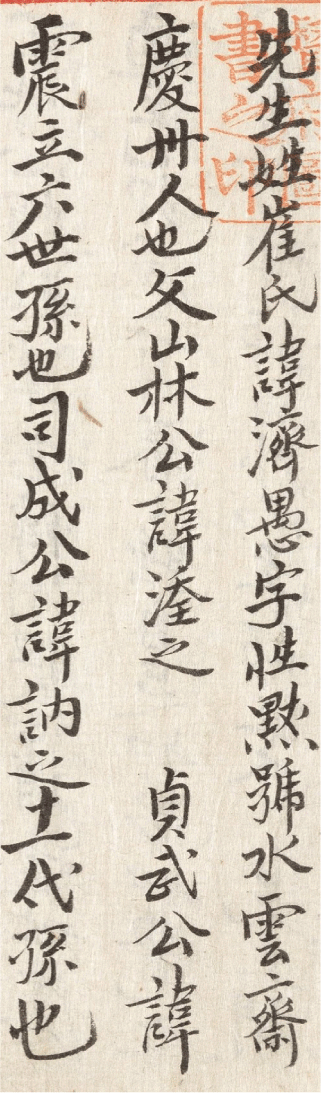 先生姓崔氏諱濟愚字性黙號水雲齋
慶州人也父山林公諱𣴎之 貞武公諱
震立六世孫也司成公諱訥之十一代孫也
書之印